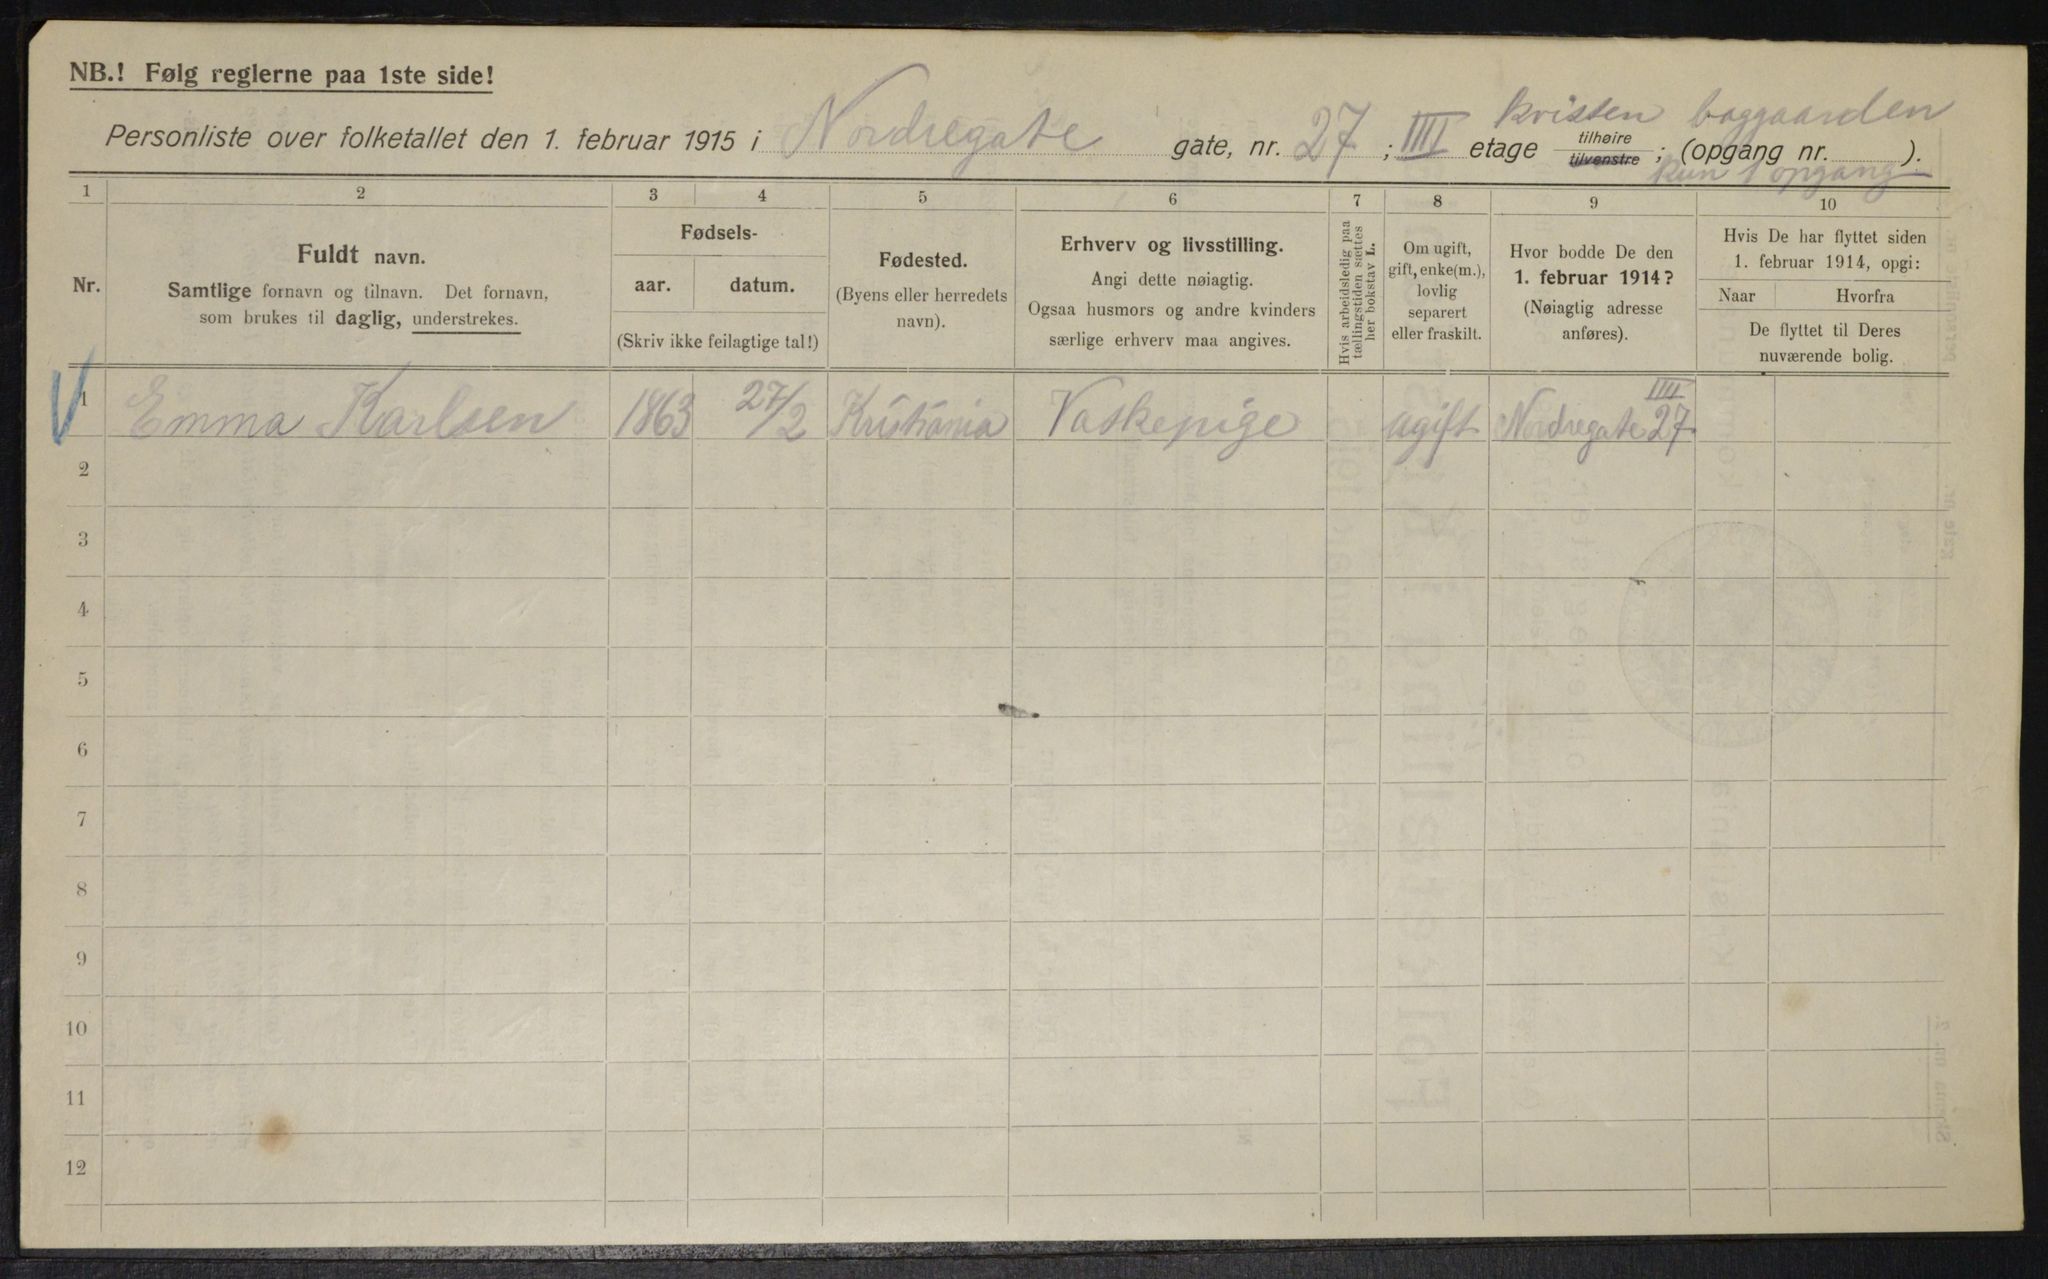 NB.! Følg reglerne paa 1ste side!
kvisten baggaarden
Personliste over folketallet den 1. februar 1915 i Nordregate gate, nr. 27; IIII etage tilhøire tilvenstre; (opgang nr. ).
kun 1 opgang
1 2 3 4 5 6 7 8 9 10
Nr.
Fuldt navn.
Samtlige fornavn og tilnavn. Det fornavn,
som brukes til daglig, understrekes.
Fødsels-
aar. datum.
(Skriv ikke feilagtige tal!)
Fødested.
(Byens eller herredets
navn).
Erhverv og livsstilling.
Angi dette nøiagtig.
Ogsaa husmors og andre kvinders
særlige erhverv maa angives.
Hvis arbeidsledig paa
tællingstiden sættes
her bokstav L.
Om ugift,
gift, enke(m.),
lovlig
separert
eller fraskilt.
Hvor bodde De den
1. februar 1914?
(Nøiagtig adresse
anføres).
Hvis De har flyttet siden
1. februar 1914, opgi:
Naar Hvorfra
De flyttet til Deres
nuværende bolig.
IIII
1 Emma Karlsen 1863 27/2 Kristiania Vaskepige ugift Nordregate 27
2
3
4
5
6
7
8
9
10
11
12